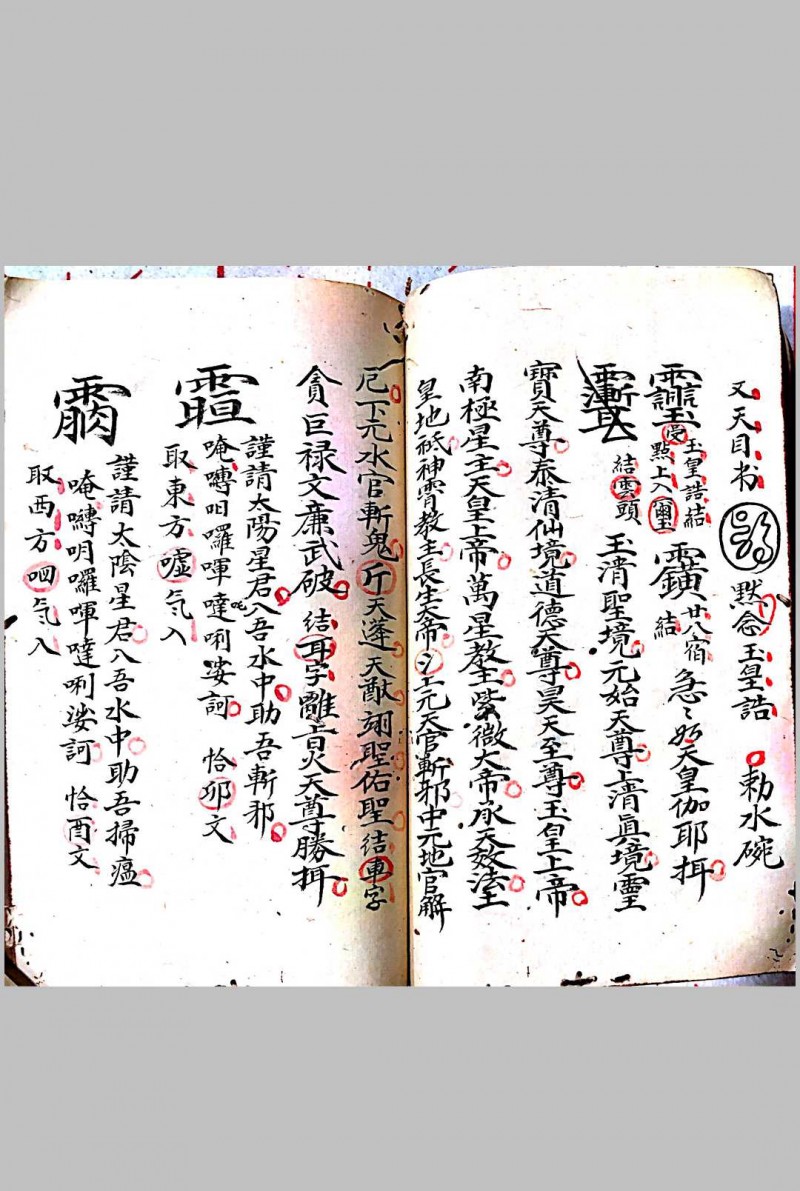 又天目书 默念玉皇誥 勅水碗
玉皇誥結
點上入 廿八宿 結 急〻如天皇伽耶揖
結雲頭 玉清聖境元始天尊上清眞境靈
寶天尊泰清仙境道德天尊昊天至尊玉皇上帝
南極星主天皇上帝萬星教主紫微大帝承天效法土
皇地祇神霄教主長生大帝 上元天官斬邪中元地官解
厄下元水官斬鬼 天蓬天猷翊聖佑聖結車字
貪巨禄文廉武破 結耳字 火天尊勝揖
謹請太陽星君入吾水中助吾斬邪
唵嚩囉㖇噠唎娑訶 恰卯文
取東方噓氣入
謹請太陰星君入吾水中助吾掃瘟
唵嚩囉㖇噠唎娑訶 恰酉文
取西方呬氣入